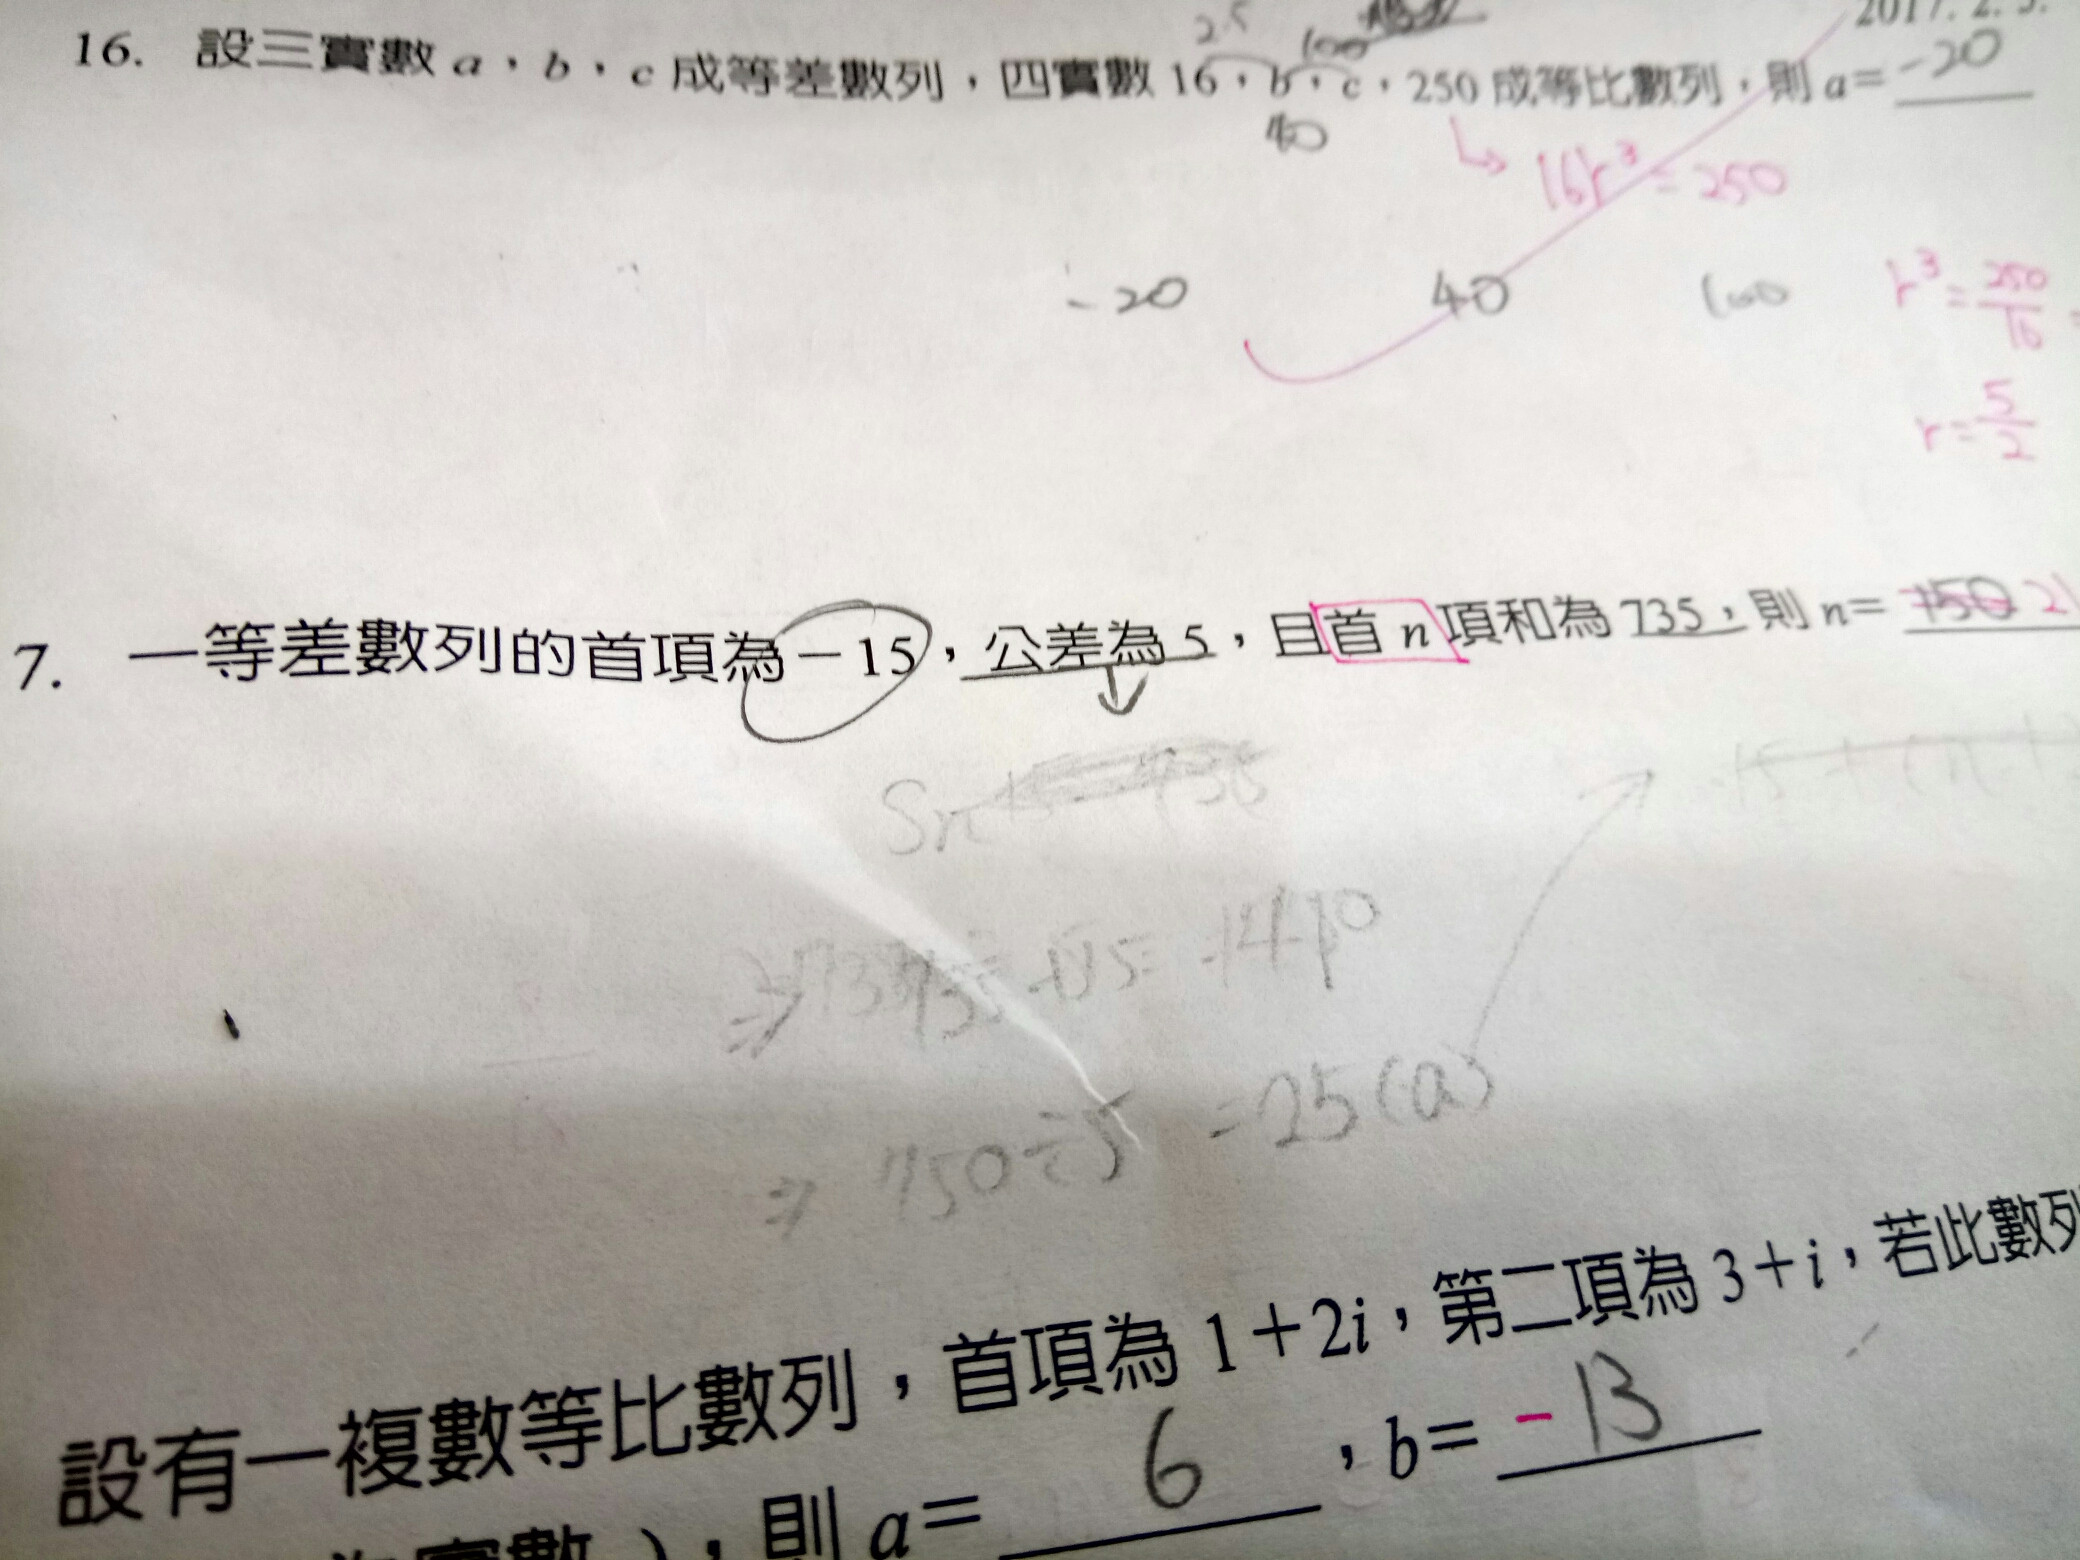 2.5
100
16. 設三實數 a，b，c 成等差數列，四實數 16，b，c，250 成等比數列，則 a= -20
40
16r³ = 250
-20 40 100
r³ = 250/16 =
r = 5/2
7. 一等差數列的首項為 −15，公差為 5，且首 n 項和為 735，則 n= 150 21
Sn
⇒ 750÷5 = 25(a)
設有一複數等比數列，首項為 1+2i，第二項為 3+i，若此數列
，則 a= 6 ，b= -13